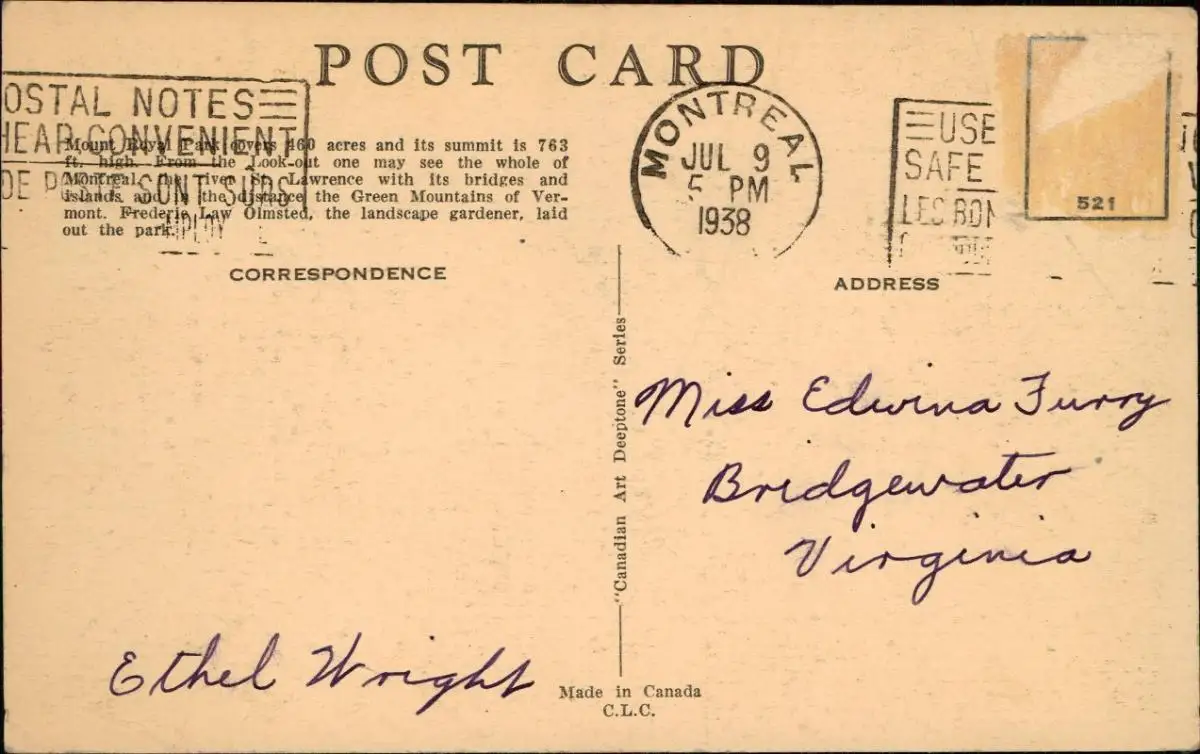 POST CARD
OSTAL NOTES
HEAP CONVENIENT
DE POSTE SONT SURS
Mount Royal Park covers 460 acres and its summit is 763
ft. high. From the Look-out one may see the whole of
Montreal, the river St. Lawrence with its bridges and
islands and in the distance the Green Mountains of Ver-
mont. Frederic Law Olmsted, the landscape gardener, laid
out the park.
MONTREAL
JUL 9
5 PM
1938
USE
SAFE
LES BON
521
CORRESPONDENCE
ADDRESS
"Canadian Art Deeptone" Series
Miss Edwina Furry
Bridgewater
Virginia
Ethel Wright
Made in Canada
C.L.C.